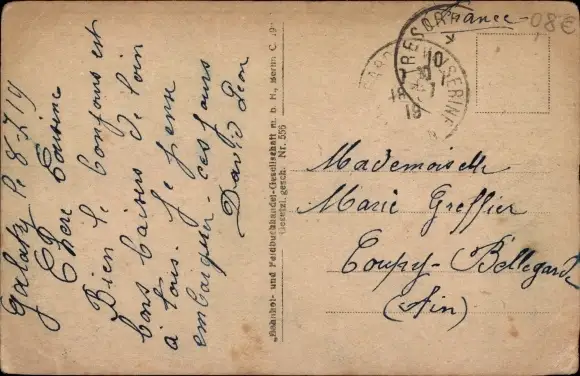 Galatz le 8.7.19
Chère Cousine
Bien le bonjour est
bons baisers de loin
à tous. Je pense
embarquer ces jours
David Leon
"Bahnhof- und Feldbuchhandel-Gesellschaft m. b. H., Berlin C. 19"
Gesetzl. gesch. Nr. 556
France
08€
TRESOR
10
Mademoiselle
Marie Greffier
Coupy-Bellegarde
(Ain)